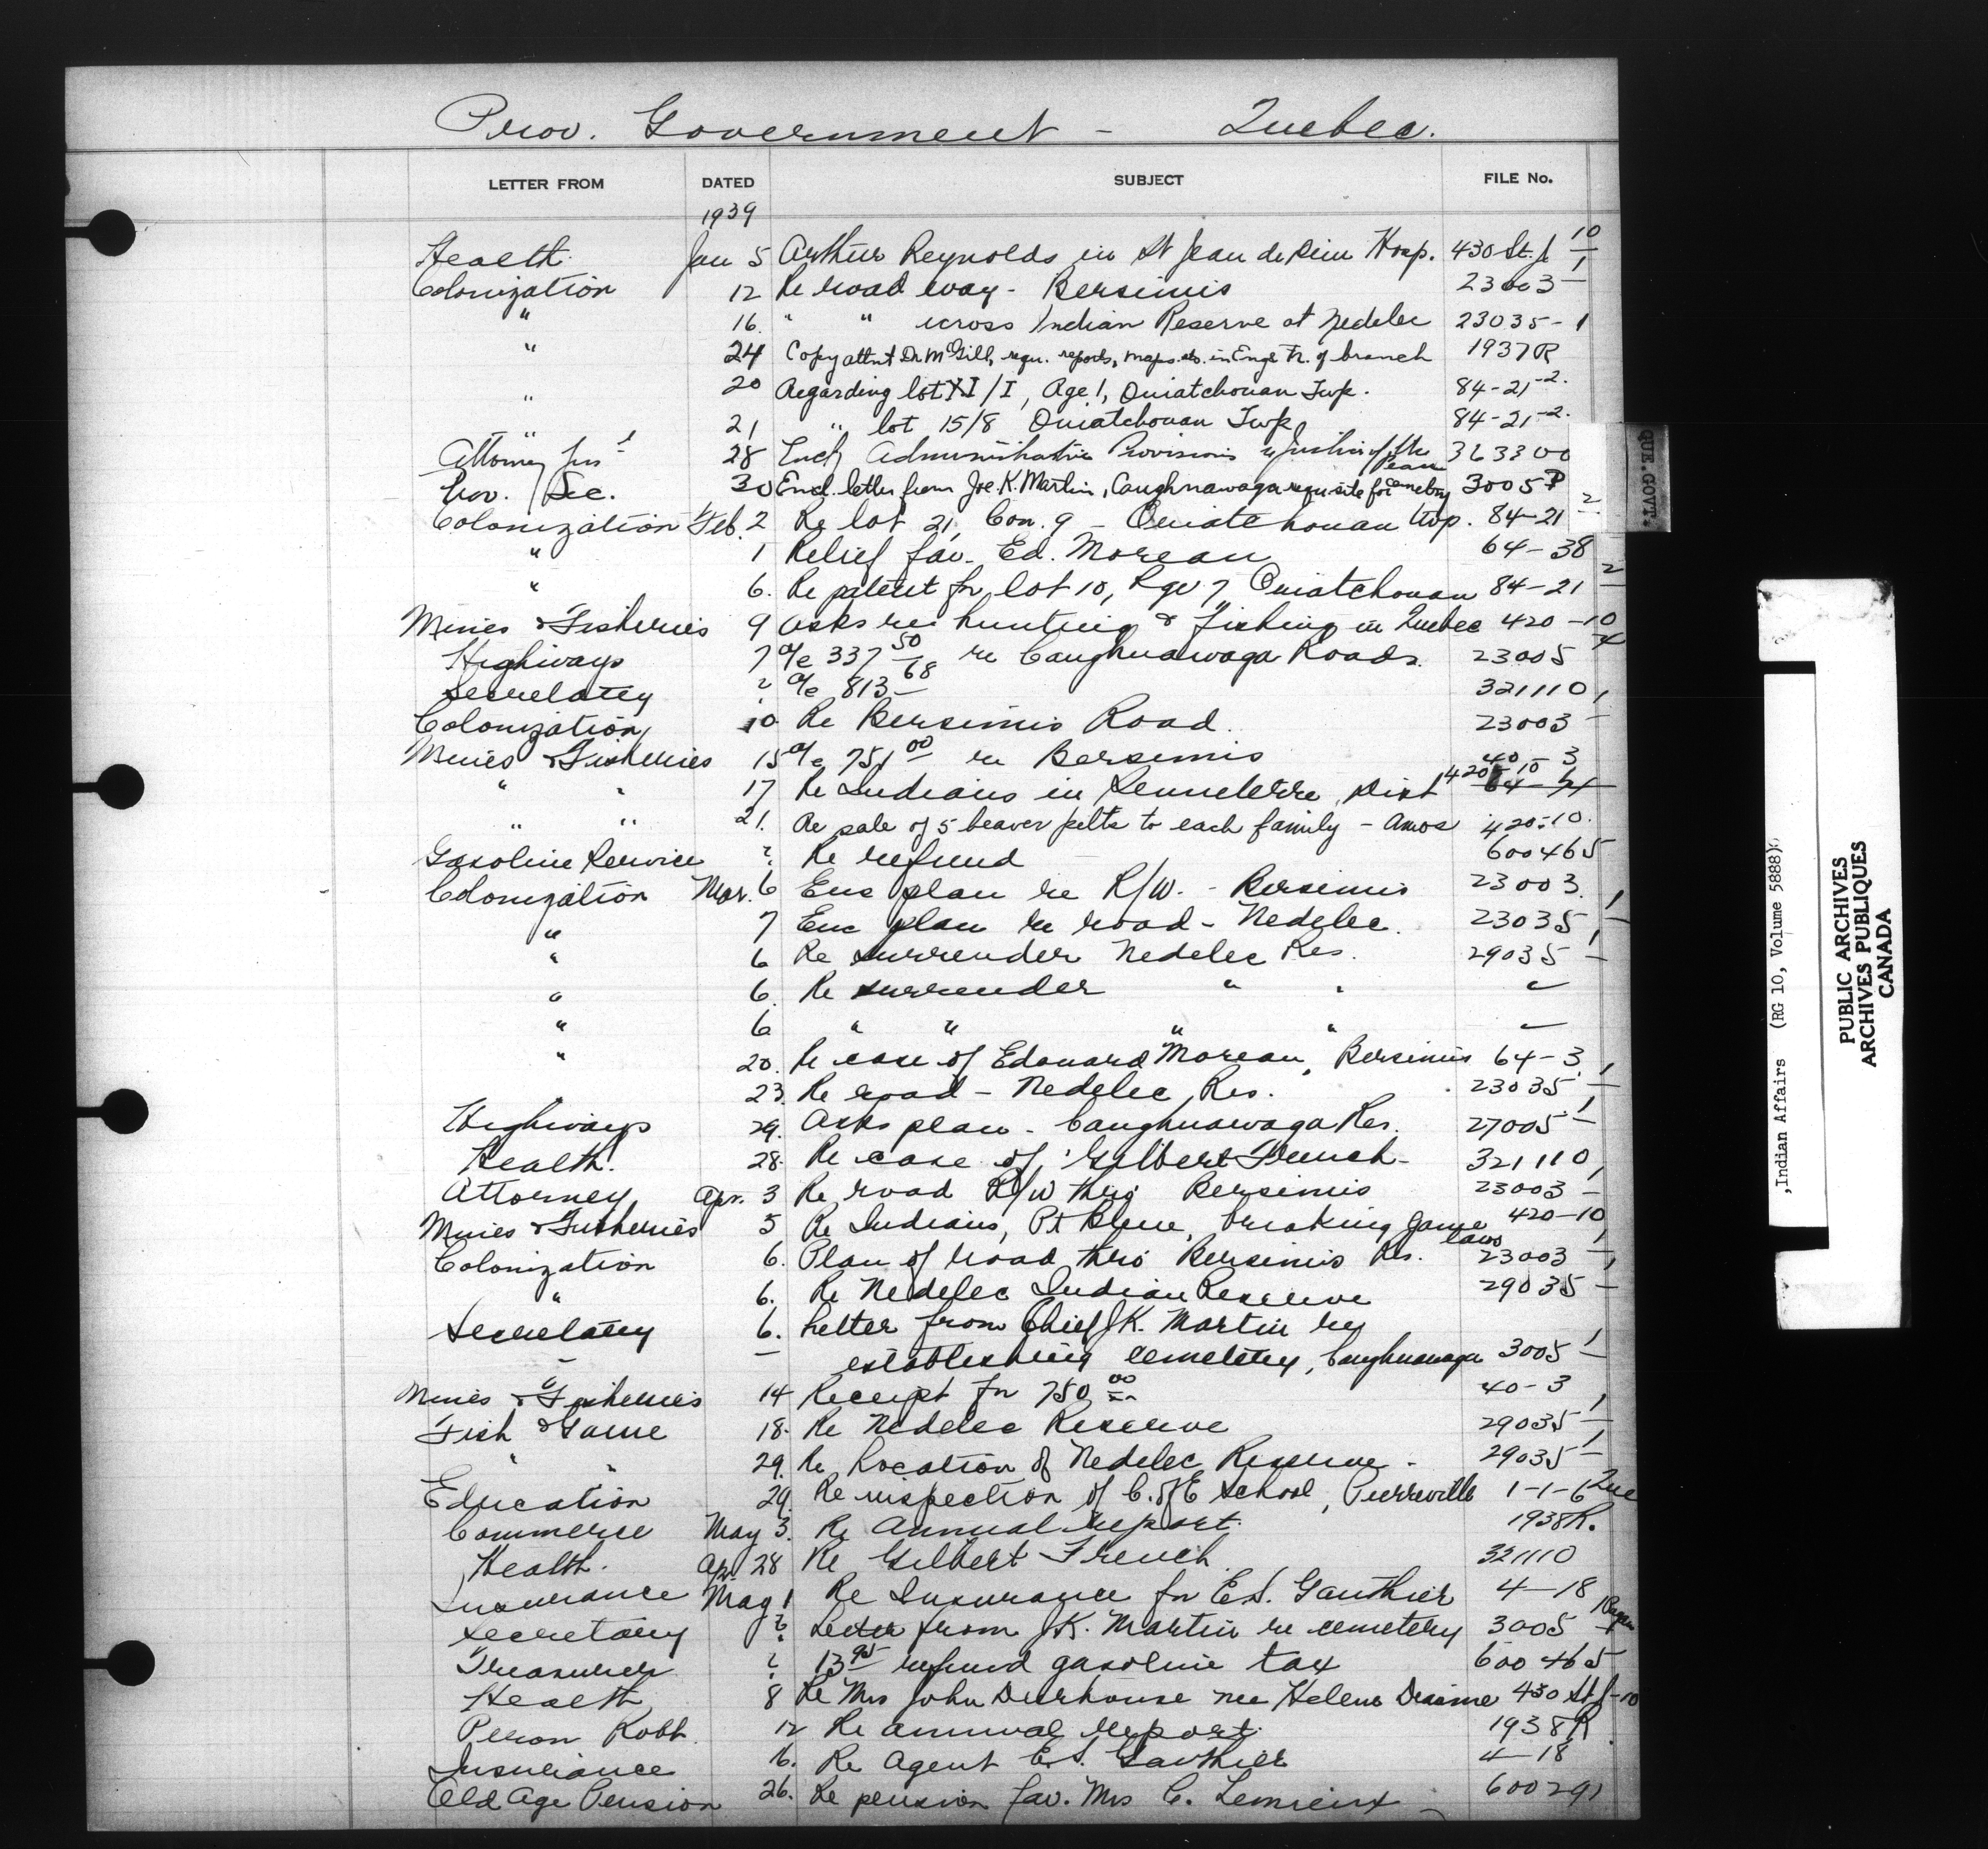 Prov. Government - Quebec.
LETTER FROM DATED SUBJECT FILE No.
1939
Health Jan 5 Arthur Reynolds in St Jean de Dieu Hosp. 430 St. J 10
Colonization 12 Re road way - Bersimis 23003 - 1
" 16. " " across Indian Reserve at Nedelec 23035 - 1
" 24 Copy attnt Dr McGill, requ. reports, maps etc. in Engl & Fr. of branch 1937 R
" 20 Regarding lot XI/I, Rge 1, Ouiatchouan Twp. 84-21-2.
" 21 " lot 15/8 Ouiatchouan Twp 84-21-2.
Attorney 28 Encl Administration Provisions Justice of the Peace 363300
Prov. Sec. 30 Encl. letter from Joe K. Martin, Caughnawaga requ site for cemetery 3005 P
Colonization Feb. 2 Re lot 21, Con. 9 - Ouiatchouan twp. 84-21 2
" 1 Relief fav. Ed. Moreau 64-38
" 6. Re patent for lot 10, Rge 7, Ouiatchouan 84-21 2
Mines & Fisheries 9 Asks re hunting & fishing in Quebec 420-10
Highways 7 a/c 337 50 re Caughnawaga Roads. 23005 4
Secretary ? a/c 813 68 321110
Colonization 10 Re Bersimis Road. 23003 - 1
Mines & Fisheries 15 a/c 751 00 re Bersimis 40-3
" " 17 Re Indians in Senneterre Dist 420-10
" " 21. Re sale of 5 beaver pelts to each family - Amos 420-10.
Gasoline Service ? Re refund 600465
Colonization Mar. 6 Enc plan re R/W. - Bersimis 23003.
" 7 Enc plan re road - Nedelec. 23035 - 1
" 6 Re surrender Nedelec Res. 29035 - 1
" 6. Re surrender " " "
" 6 " " " " "
" 20. Re case of Edouard Moreau, Bersimis 64-3
" 23. Re road - Nedelec Res. 23035 - 1
Highways 29. Asks plan - Caughnawaga Res. 27005 - 1
Health. 28. Re case of Gilbert French - 321110
Attorney Apr. 3 Re road R/W thro Bersimis 23003 - 1
Mines & Fisheries 5 Re Indians, Pt Bleue, breaking game laws 420-10
Colonization 6. Plan of road thro Bersimis Res. 23003 - 1
" 6. Re Nedelec Indian Reserve 29035 - 1
Secretary 6. Letter from Chief J.K. Martin re
establishing cemetery, Caughnawaga 3005 - 1
Mines & Fisheries 14 Receipt for 750 00 40-3
Fish & Game 18. Re Nedelec Reserve 29035 - 1
" " 29. Re Location of Nedelec Reserve - 29035 - 1
Education 29. Re inspection of C. of E School, Pierreville 1-1-6 Que
Commerce May 3. Re Annual report. 1938 R.
Health. Apr 28 Re Gilbert French 321110
Insurance May 1 Re Insurance for E.S. Gauthier 4-18
Secretary ? Letter from J.K. Martin re cemetery 3005
Treasurer ? 13 95 refund gasoline tax 600465
Health 8 Re Mrs John Deerhouse nee Helene 430 St J-10
Peron Robt. 12 Re annual report. 1938 R
Insurance 16. Re Agent E.S. Gauthier 4-18
Old Age Pension 26. Re pension fav. Mrs C. Lemieux 600291
QUE. GOVT.
Indian Affairs (RG 10, Volume 5888)
PUBLIC ARCHIVES
ARCHIVES PUBLIQUES
CANADA